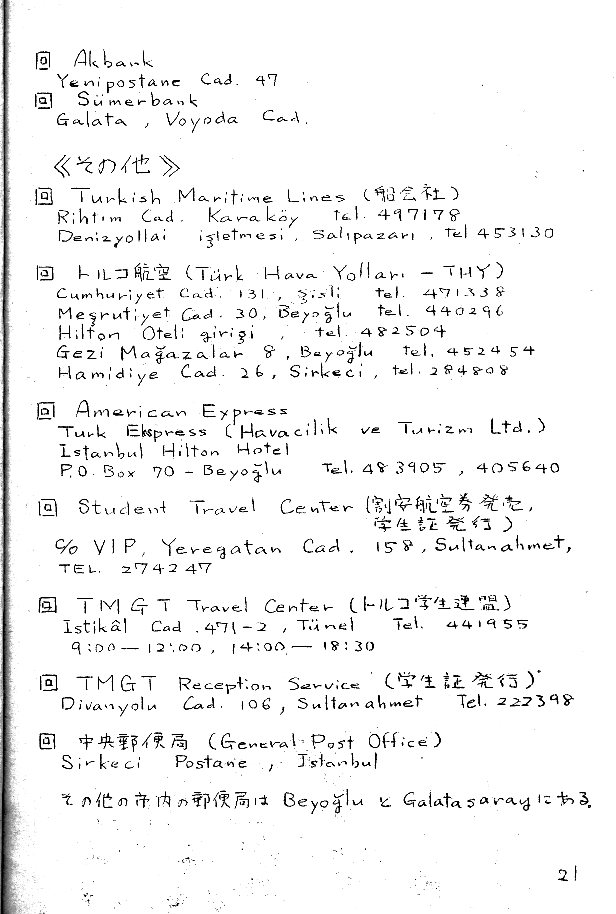 回 Akbank
Yenipostane Cad. 47
回 Sümerbank
Galata , Voyoda Cad.
《その他》
回 Turkish Maritime Lines (船会社)
Rihtim Cad. Karaköy tel. 497178
Denizyollai işletmesi, Salıpazarı , tel 453130
回 トルコ航空 (Türk Hava Yolları - THY)
Cumhuriyet Cad. 131 , Şişli tel. 471338
Meşrutiyet Cad. 30, Beyoğlu tel. 440296
Hilton Oteli girişi , tel. 482504
Gezi Mağazalar 8 , Beyoğlu tel. 452454
Hamidiye Cad. 26 , Sirkeci , tel. 284808
回 American Express
Turk Ekspress (Havacilik ve Turizm Ltd.)
Istanbul Hilton Hotel
P.O. Box 70 - Beyoğlu Tel. 483905 , 405640
回 Student Travel Center (割安航空券発売,
学生証発行)
c/o VIP, Yeregatan Cad. 158, Sultanahmet,
TEL. 274247
回 TMGT Travel Center (トルコ学生連盟)
Istikâl Cad. 471-2 , Tünel Tel. 441955
9:00 — 12:00 , 14:00 — 18:30
回 TMGT Reception Service (学生証発行)
Divanyolu Cad. 106, Sultanahmet Tel. 227398
回 中央郵便局 (General Post Office)
Sirkeci Postane , Istanbul
その他の市内の郵便局は Beyoğlu と Galatasarayにある。
21